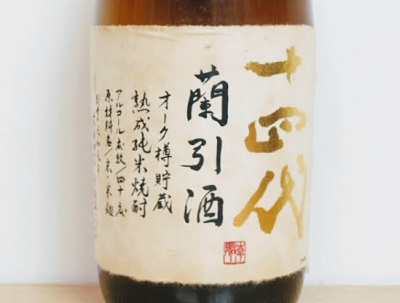 十四代
蘭引酒
オーク樽貯蔵
熟成純米焼酎
アルコール度数/四十度
原材料名/米・米麹